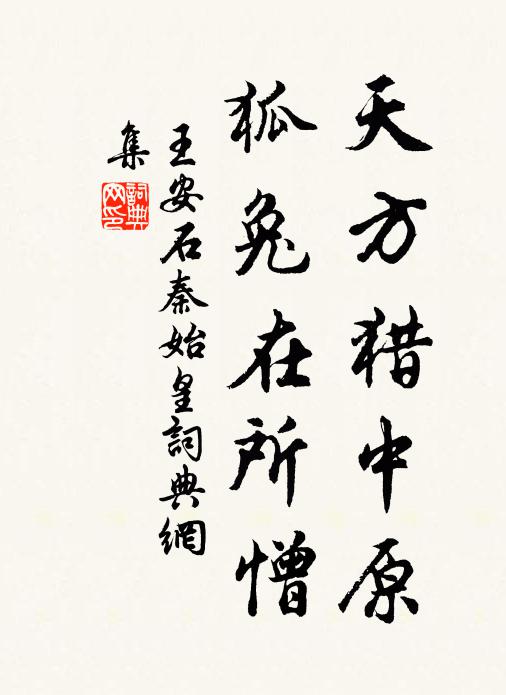 天方猎中原
狐兔在所憎
王安石秦始皇詞典網
集
詞典
网印